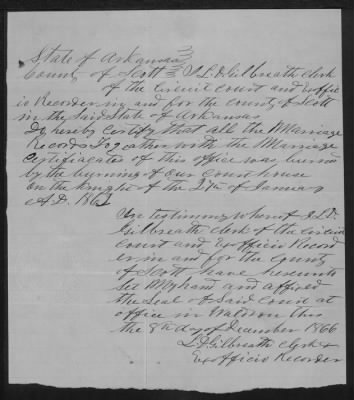 State of Arkansas
County of Scott I L. D. Gilbreath clerk
of the Circuit court and Exoffic
io Recorder in and for the county of Scott
in the Said State of Arkansas
do hereby certify that all the Marriage
Records Togather with the Marriage
Certifiacates of this office was burned
by the burning of our Court house
on the knight of the 27th of January
A.D. 1863
In testimony whereof I L. D.
Gilbreath clerk of the Circuit
Court and Exofficio Record
er in and for the County
of Scott have hereunto
Set My hand and affixed
the Seal of Said Court at
office in Waldron this
the 8th day of December 1866
L. D. Gilbreath Clerk &
Exofficio Recorder